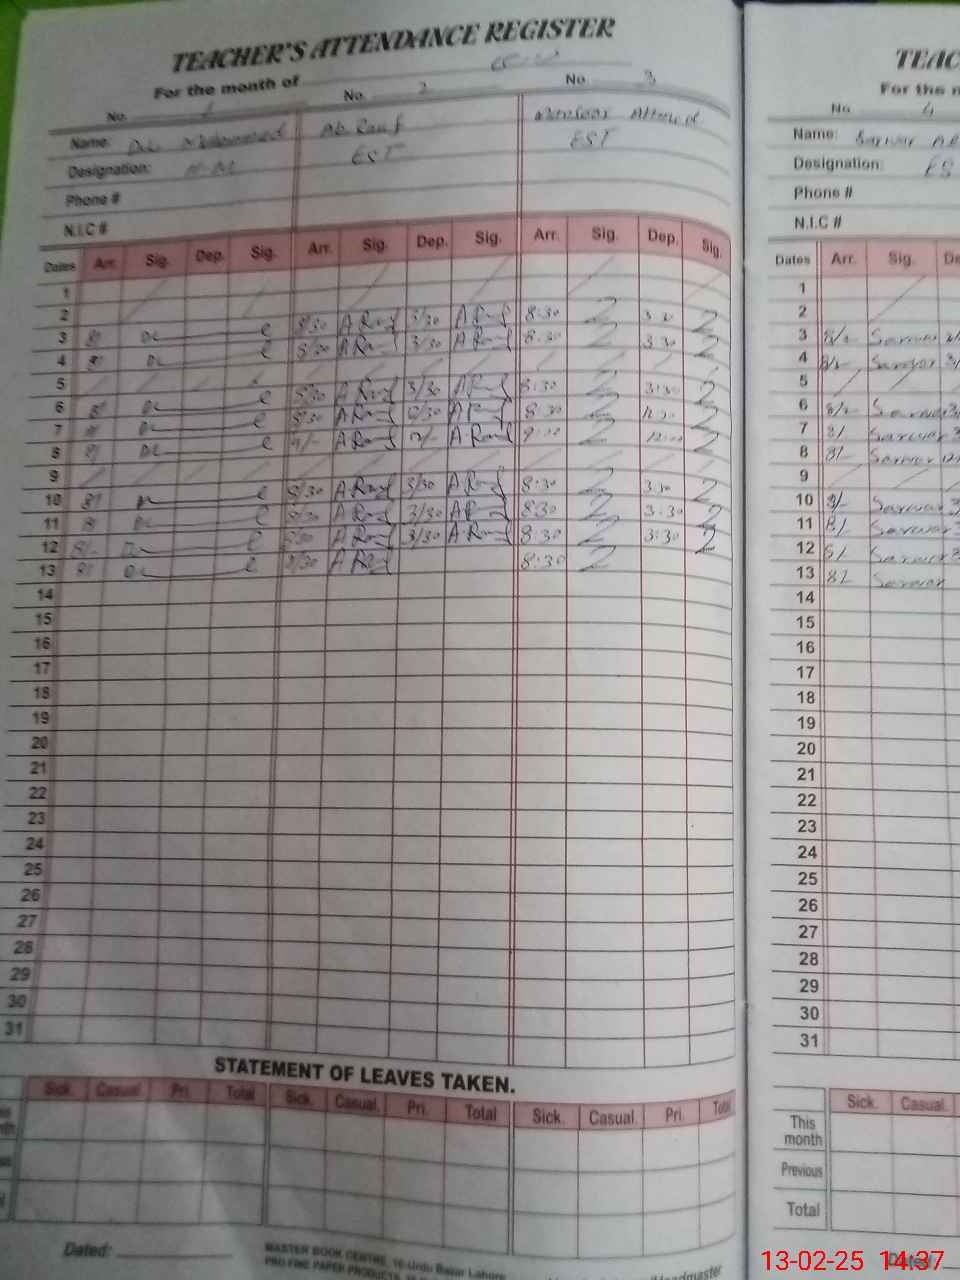 TEACHER'S ATTENDANCE REGISTER
For the month of
No. 1 No. 2 No. 3
Name: Ab Rauf Manzoor Ahmed
Designation: H.M EST EST
Phone #
N.I.C #
Dates Arr. Sig. Dep. Sig. Arr. Sig. Dep. Sig. Arr. Sig. Dep. Sig.
1
2
3 8/ 8/30 A Rauf 3/30 A Rauf 8:30 3:30
4 8/ 8/30 A Rauf 3/30 A Rauf 8:30 3:30
5
6 8/ 8/30 A Rauf 3/30 A Rauf 8:30 3:30
7 8/30 A Rauf A Rauf 8:30
8 8/ 9/- A Rauf 12/- A Rauf 9:00 12:00
9
10 8/ 8/30 A Rauf 3/30 A Rauf 8:30 3:30
11 8/ 8/30 A Rauf 3/30 A Rauf 8:30 3:30
12 8/- 8/30 A Rauf 3/30 A Rauf 8:30 3:30
13 8/ 8/30 A Rauf 8:30
14
15
16
17
18
19
20
21
22
23
24
25
26
27
28
29
30
31
STATEMENT OF LEAVES TAKEN.
Sick. Casual Pri. Total Sick. Casual. Pri. Total Sick. Casual. Pri. Total
Dated:
MASTER BOOK CENTRE, 16-Urdu Bazar Lahore
PRO FINE PAPER PRODUCTS,
Headmaster
TEAC
For the m
No 4
Name: Sarwar
Designation: ES
Phone #
N.I.C #
Dates Arr. Sig. De
1
2
3 8/- Sarwar
4 8/- Sarwar
5
6 8/- Sarwar
7 8/ Sarwar
8 8/- Sarwar
9
10 8/- Sarwar
11 8/ Sarwar
12 8/ Sarwar
13 8/ Sarwar
14
15
16
17
18
19
20
21
22
23
24
25
26
27
28
29
30
31
Sick. Casual.
This month
Previous
Total
Dated:
13-02-25 14:37